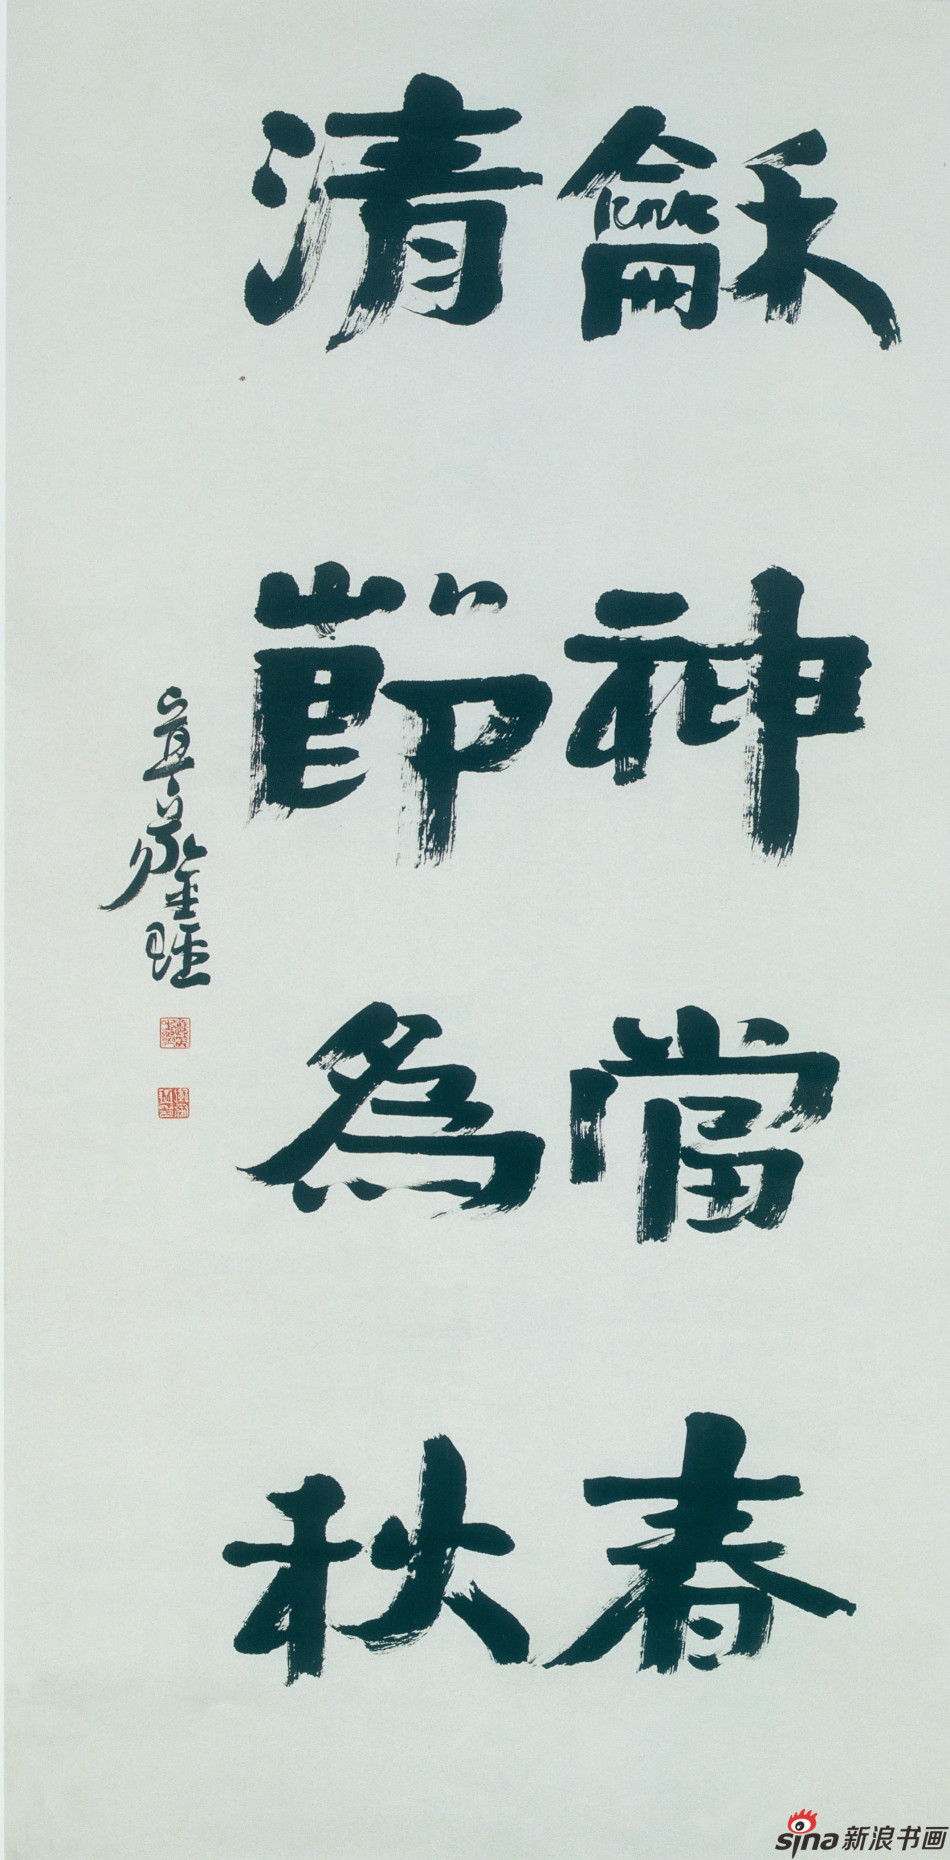 龢神當春
清節為秋
sina新浪书画